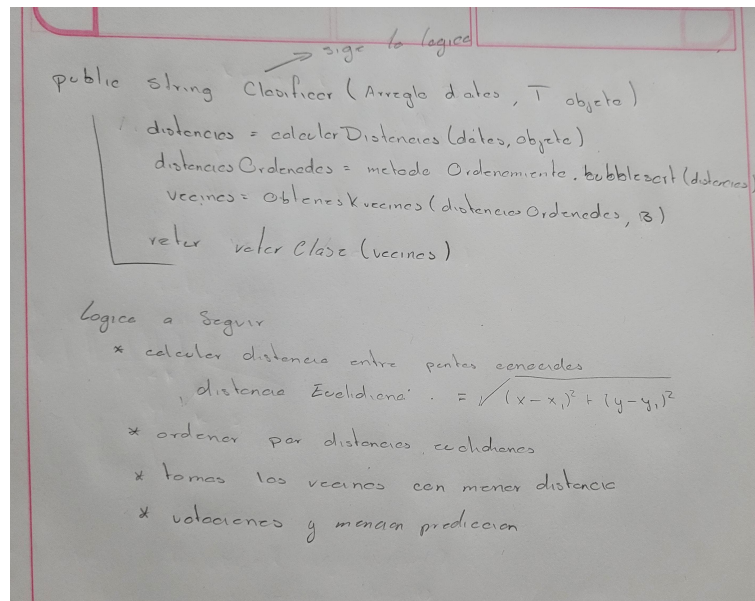 sige la logica
public string Clasificar (Arreglo datos, T objeto)
distancias = calcularDistancias (datos, objeto)
distanciasOrdenadas = metodo Ordenamiento.bubblesort (distancias)
vecinos = ObtenesKvecinos (distanciasOrdenadas, 3)
retur votar Clase (vecinos)
Logica a Seguir
* calcular distancia entre puntos conocidos
distancia Euclidiana = √(x-x₁)² + (y-y₁)²
* ordenar por distancias euclidianas
* tomas los vecinos con menor distancia
* votaciones y mencion prediccion